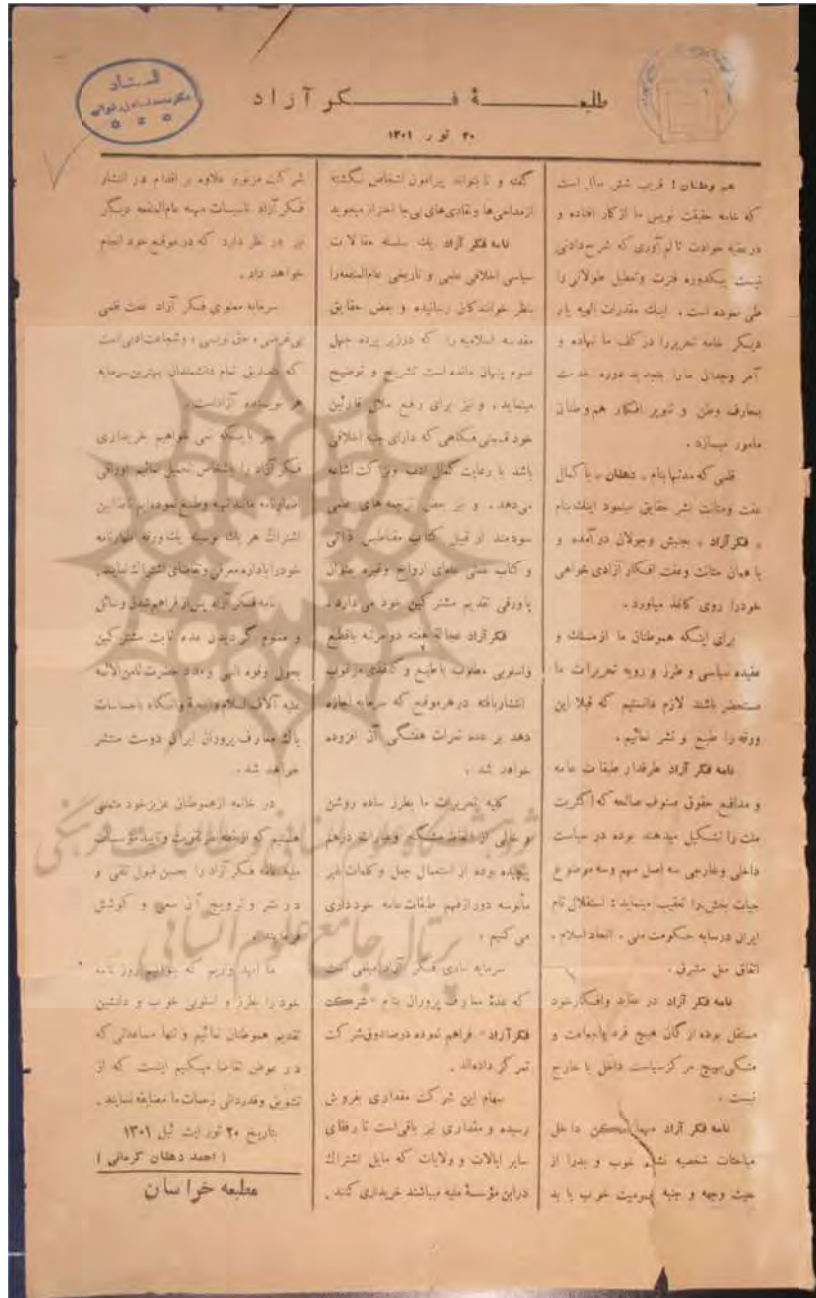 طلیعهٔ فکر آزاد
۲۰ ثور ۱۳۰۱
هم وطنان! قریب شش سال است
که خامه حقیقت نویس ما از کار افتاده و
در عقبه حوادث تألم آوری که شرح دادنی
نیست یکدوره فترت و تعطیل طولانی را
طی نموده است . اینك مقدرات الهیه بار
دیگر خامه تحریر را در کف ما نهاده و
آمر وجدان ما را بتجدید دوره خدمت
بمعارف وطن و تنویر افکار هم وطنان
مامور میسازد .
قلمی که مدتها بنام « دهقان » با کمال
عفت ومتانت نشر حقایق مینمود اینك بنام
« فکر آزاد » بجنبش وجولان در آمده و
با همان متانت وعفت افکار آزادی خواهی
خودرا روی کاغذ میاورد .
برای اینکه هموطنان ما از مسلك و
عقیده سیاسی و طرز و رویه تحریرات ما
مستحضر باشند لازم دانستیم که قبلا این
ورقه را طبع و نشر نمائیم .
نامه فکر آزاد طرفدار طبقات عامه
و مدافع حقوق صنوف صالحه که اکثریت
ملت را تشکیل میدهند بوده در سیاست
داخلی وخارجی سه اصل مهم وسه موضوع
حیات بخش را تعقیب مینماید : استقلال تام
ایران درسایه حکومت ملی . اتحاد اسلام .
اتفاق ملل مشرق .
نامه فکر آزاد در عقاید وافکار خود
مستقل بوده ارگان هیچ فرد یا جماعت و
متکی بهیچ مرکز سیاست داخل یا خارج
نیست .
نامه فکر آزاد مهما امکن داخل
مباحثات شخصیه نشده خوب و بد را از
حیث وجهه و جنبه عمومیت خوب یا بد
گفته و تا بتواند پیرامون اشخاص نگشته
از مداحی ها و نقادی های بی جا احتراز میجوید
نامه فکر آزاد یك سلسله مقالات
سیاسی اخلاقی علمی و تاریخی عام المنفعه را
بنظر خوانندگان رسانیده و بعض حقایق
مقدسه اسلامیه را که در زیر پرده جهل
عموم پنهان مانده است تشریح و توضیح
مینماید . و نیز برای رفع ملال قارئین
خود قسمتی فکاهی که دارای جنبه اخلاقی
باشد با رعایت کمال ادب ونزاکت اشاعه
می دهد . و نیز بعض ترجمه های علمی
سودمند از قبیل کتاب مغناطیس ذاتی
و کتاب علمی علمای ارواح وغیره بعنوان
پاورقی تقدیم مشترکین خود می دارد .
فکر آزاد عجالة هفته دو مرتبه باقطع
واسلوبی مطلوب با طبع و کاغذی مرغوب
انتشار یافته در هرموقع که سرمایه اجازه
دهد بر عده نمرات هفتگی آن افزوده
خواهد شد .
کلیه تحریرات ما بطرز ساده روشن
و خالی از الفاظ مشکله وعبارات درهم
پیچیده بوده از استعمال جمل و کلمات غیر
مأنوسه دور از فهم طبقات عامه خودداری
می کنیم .
سرمایه مادی فکر آزاد مبلغی است
که عدهٔ معارف پروران بنام «شرکت
فکر آزاد» فراهم نموده درصندوق شرکت
تمرکز داده اند .
سهام این شرکت مقداری بفروش
رسیده و مقداری نیز باقی است تا رفقای
سایر ایالات و ولایات که مایل اشتراك
دراین مؤسسهٔ ملیه میباشند خریداری کنند .
شرکت مزبور علاوه بر اقدام در انتشار
فکر آزاد تاسیسات مهمه عام المنفعه دیگر
نیز در نظر دارد که در موقع خود انجام
خواهد داد .
سرمایه معنوی فکر آزاد عفت قلمی
بی غرضی ، حق نویسی ، وشجاعت ادبی است
که بتصدیق تمام دانشمندان بهترین سرمایه
هر نویسنده آزاد است .
جز باینکه نمی خواهیم خریداری
فکر آزاد را باشخاص تحمیل نمائیم اوراقی
اظهارنامه مانند تهیه وطبع نموده ایم تا طالبین
اشتراك هر یك بوسیله یك ورقه اظهارنامه
خودرا باداره معرفی وتقاضای اشتراك نمایند .
نامه فکر آزاد پس از فراهم شدن وسائل
و معلوم گردیدن عده ثابت مشترکین
بحول وقوه الهی و مدد حضرت ثامن الائمه
علیه آلاف السلام والتحیة واتکاء باحساسات
پاك معارف پروران ایران دوست منتشر
خواهد شد .
در خاتمه از هموطنان عزیز خود متمنی
هستیم که از نقطه نظر تقویت و تایید مؤسسات
ملیه نامه فکر آزاد را بحسن قبول تلقی و
در نشر و ترویج آن سعی و کوشش
فرمایند .
ما امید واریم که بتوانیم روزنامه
خود را بطرز و اسلوبی خوب و دلنشین
تقدیم هموطنان نمائیم و تنها مساعدتی که
در عوض تقاضا میکنیم اینست که از
تشویق وقدردانی زحمات ما مضایقه ننمایند .
بتاریخ ۲۰ ثور ایت ئیل ۱۳۰۱
( احمد دهقان کرمانی )
مطبعه خراسان
پژوهشگاه علوم انسانی و مطالعات فرهنگی
پرتال جامع علوم انسانی